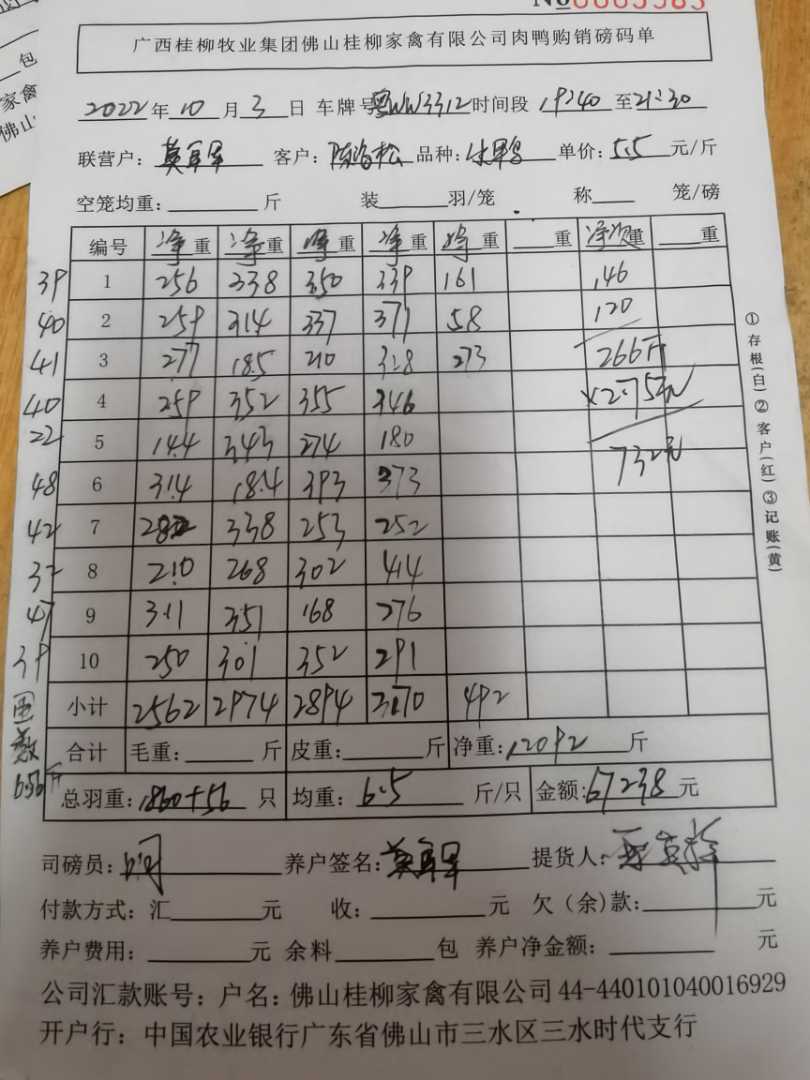 包
家禽
佛山
广西桂柳牧业集团佛山桂柳家禽有限公司肉鸭购销磅码单
2022年10月3日 车牌号粤WW3312时间段19:40至21:30
联营户: 客户:陈 松 品种:水鸭 单价:5.5元/斤
空笼均重: 斤 装 羽/笼 称 笼/磅
编号 净重 净重 净重 净重 净重 重 净次重 重
39 1 256 338 350 339 161 146
40 2 259 314 337 371 58 120
41 3 277 185 210 328 273 266斤
40 4 259 352 355 346 ×2.75元
22 5 144 343 274 180 732元
48 6 314 184 393 373
42 7 282 338 253 252
32 8 210 268 302 414
47 9 311 351 168 276
39 10 250 301 352 291
小计 2562 2974 2894 3170 492
合计 毛重: 斤 皮重: 斤 净重:12092斤
656斤 总羽重:1860+56只 均重:6.5斤/只 金额:67238元
司磅员: 养户签名: 提货人:
付款方式:汇 元 收: 元 欠(余)款: 元
养户费用: 元 余料 包 养户净金额: 元
公司汇款账号:户名:佛山桂柳家禽有限公司44-440101040016929
开户行:中国农业银行广东省佛山市三水区三水时代支行
①存根(白)②客户(红)③记账(黄)